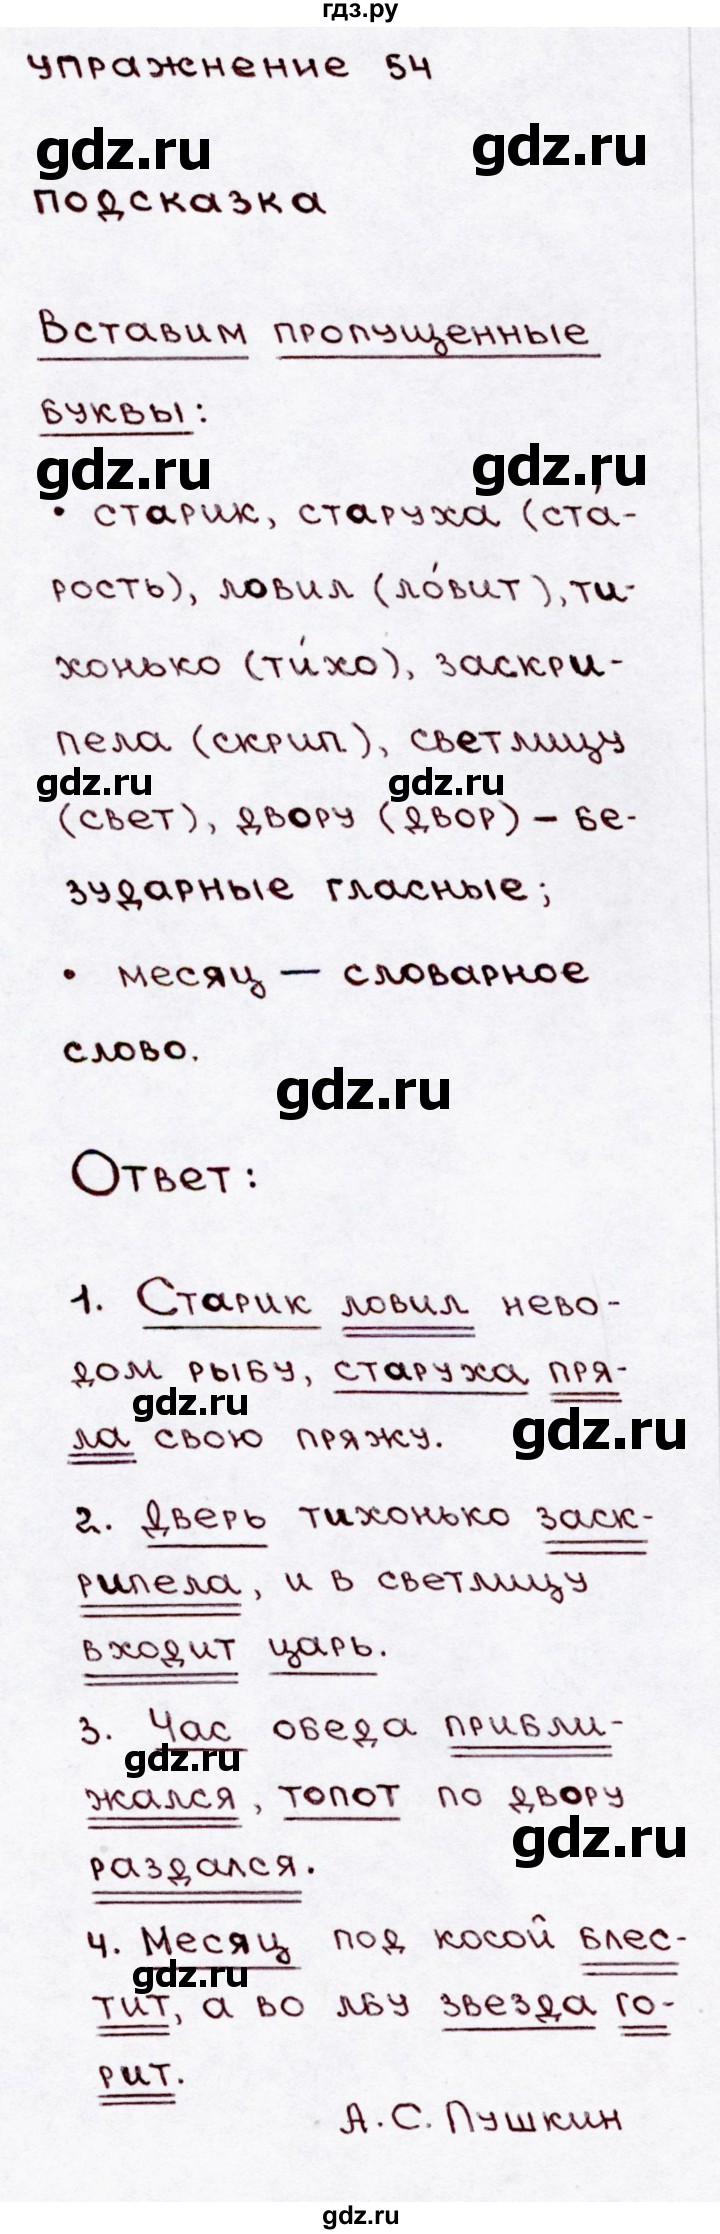 гдз.ру
упражнение 54
gdz.ru gdz.ru
подсказка
Вставим пропущенные
буквы:
gdz.ru gdz.ru
• старик, старуха (ста́-
рость), ловил (ло́вит), ти-
хонько (ти́хо), заскри-
пела (скрип), светлицу
gdz.ru gdz.ru
(свет), двору (двор) – бе-
зударные гласные;
• месяц — словарное
слово.
gdz.ru
Ответ:
1. Старик ловил нево-
дом рыбу, старуха пря-
gdz.ru gdz.ru
ла свою пряжу.
2. Дверь тихонько заск-
рипела, и в светлицу
входит царь.
3. Час обеда прибли-
gdz.ru
жался, топот по двору
gdz.ru
раздался.
4. Месяц под косой блес-
gdz.ru
тит, а во лбу звезда го-
рит.
А.С.Пушкин
gdz.ru